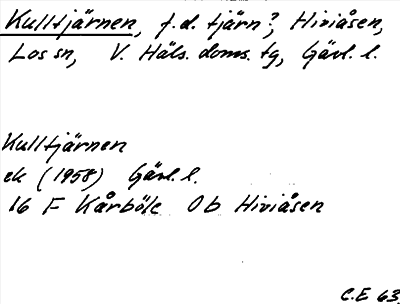 Kulltjärnen, f.d. tjärn?, Hiviåsen,
Los sn, V. Häls. doms. tg, Gävl. l.
Kulltjärnen
ek (1958) Gävl. l.
16 F Kårböle 0b Hiviåsen
C.E 63.